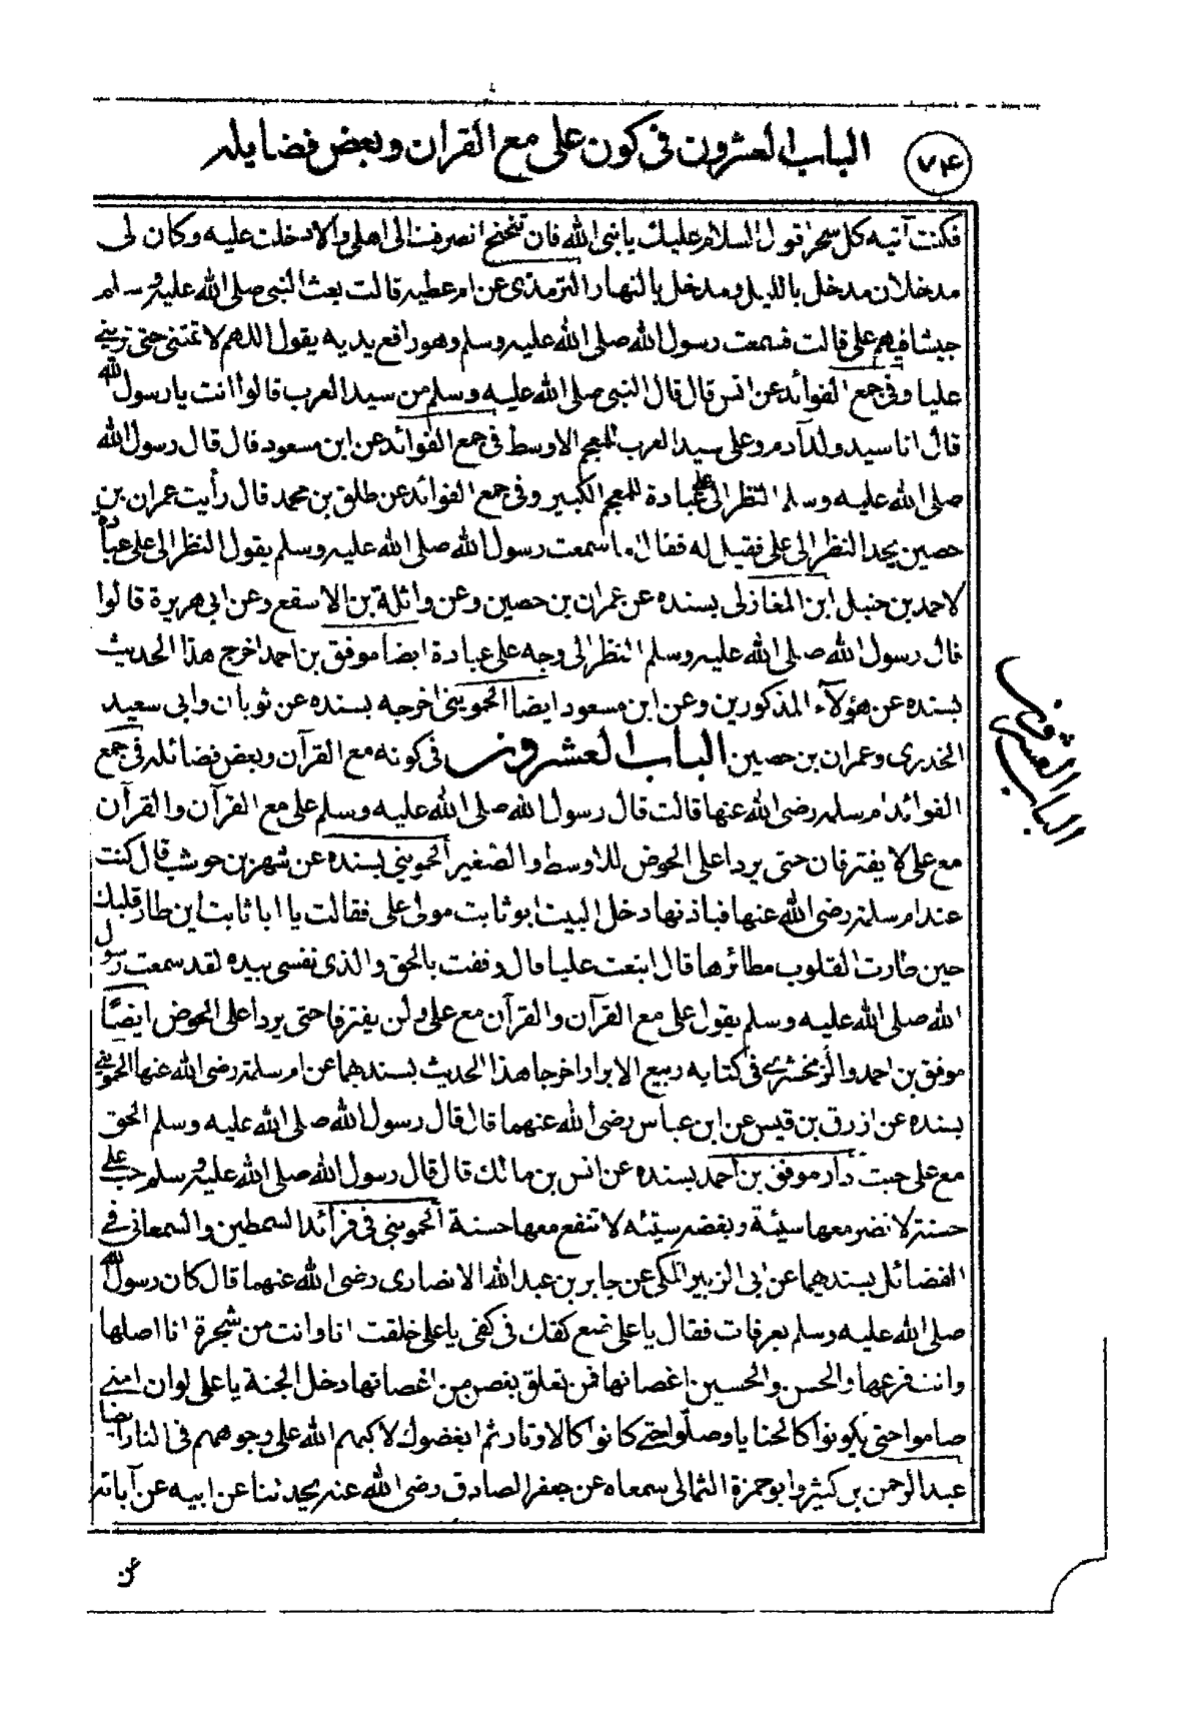 ٧٤
الباب العشرون فى كون على مع القران وبعض فضايله
فكنت آتيه كل سحر اقول السلام عليك يا نبى الله فان تنحنح انصرفت الى اهلى والا دخلت عليه وكان لى
مدخلان مدخل بالليل ومدخل بالنهار الترمذى عن ام عطيه قالت بعث النبى صلى الله عليه وسلم
جيشا فيهم على قالت فسمعت رسول الله صلى الله عليه وسلم وهو رافع يديه يقول اللهم لا تمتنى حتى ترينى
عليا وفى جمع الفوائد عن انس قال قال النبى صلى الله عليه وسلم من سيد العرب قالوا انت يا رسول الله
قال انا سيد ولد آدم وعلى سيد العرب للمعجم الاوسط فى جمع الفوائد عن ابن مسعود قال قال رسول الله
صلى الله عليه وسلم النظر الى على عبادة للمعجم الكبير وفى جمع الفوائد عن طلق بن محمد قال رأيت عمران بن
حصين يحد النظر الى على فقيل له فقال ما سمعت رسول الله صلى الله عليه وسلم يقول النظر الى على عبادة
لاحمد بن حنبل ابن المغازلى بسنده عن عمران بن حصين وعن واثلة بن الاسقع وعن ابى هريرة قالوا
قال رسول الله صلى الله عليه وسلم النظر الى وجه على عبادة ايضا موفق بن احمد اخرج هذا الحديث
بسنده عن هؤلآء المذكورين وعن ابن مسعود ايضا الحموينى اخرجه بسنده عن ثوبان وابى سعيد
الخدرى وعمران بن حصين الباب العشرون فى كونه مع القرآن وبعض فضائله فى جمع
الفوائد ام سلمه رضى الله عنها قالت قال رسول الله صلى الله عليه وسلم على مع القرآن والقرآن
مع على لا يفترقان حتى يردا على الحوض للاوسط والصغير الحموينى بسنده عن شهر بن حوشب قال كنت
عند ام سلمة رضى الله عنها فباذنها دخل البيت ابو ثابت مولى على فقالت يا ابا ثابت اين طار قلبك
حين طارت القلوب مطائرها قال اتبعت عليا قال وفقت بالحق والذى نفسى بيده لقد سمعت رسول
الله صلى الله عليه وسلم يقول على مع القرآن والقرآن مع على ولن يفترقا حتى يردا على الحوض ايضًا
موفق بن احمد والزمخشرى فى كتابه ربيع الابرار اخرجا هذا الحديث بسندهما عن ام سلمة رضى الله عنها الحموينى
بسنده عن ازرق بن قيس عن ابن عباس رضى الله عنهما قال قال رسول الله صلى الله عليه وسلم الحق
مع على حيث دار موفق بن احمد بسنده عن انس بن مالك قال قال رسول الله صلى الله عليه وسلم حب على
حسنة لا تضر معها سيئة وبغضه سيئه لا تنفع معها حسنة الحموينى فى فرائد السمطين والسمعانى فى
الفضائل بسندهما عن ابى الزبير المكى عن جابر بن عبد الله الانصارى رضى الله عنهما قال كان رسول الله
صلى الله عليه وسلم بعرفات فقال يا على ضع كفك فى كفى يا على خلقت انا وانت من شجرة انا اصلها
وانت فرعها والحسن والحسين اغصانها فمن تعلق بغصن من اغصانها دخل الجنة يا على لو ان امتى
صاموا حتى يكونوا كالحنايا وصلّوا حتى كانوا كالاوتار ثم ابغضوك لاكبهم الله على وجوههم فى النار ايضا
عبد الرحمن بن كثير وابو حمزة الثمالى سمعاه عن جعفر الصادق رضى الله عنه يحدثنا عن ابيه عن آبائه
الباب العشرون
عن